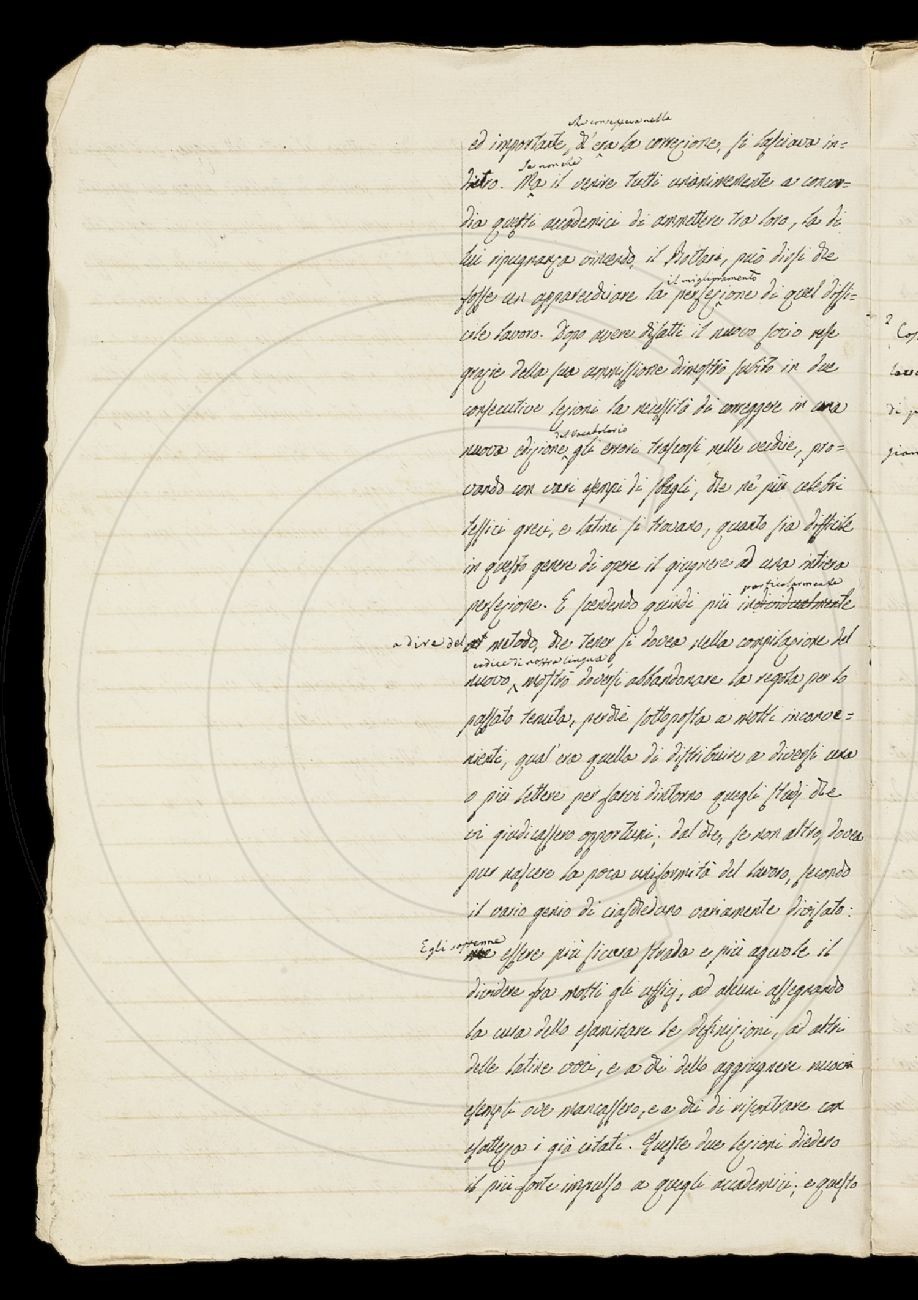 che consisteva nella
ed importante, ch'era la correzione, si lasciava in=
Se non che
dietro. Ma il venire tutti unanimemente a concor=
dia questi accademici di ammettere tra loro, la di
lui ripugnanza vincendo, il Bottari, può dirsi che
il miglioramento
fosse un apparecchiare la perfezione di quel diffi=
cile lavoro. Dopo avere difatti il nuovo socio rese
grazie della sua ammissione dimostrò subito in due
consecutive lezioni la necessità di correggere in una
del Vocabolario
nuova edizione gli errori trascorsi nelle vecchie, pro=
vando con vari esempi di sbagli, che ne' più celebri
lessici greci, e latini si trovano, quanto sia difficile
in questo genere di opere il giugnere ad una intiera
particolarmente
perfezione. E scendendo quindi più individualmente
a dire del metodo, che tener si dovea nella compilazione del
codice di nostra lingua
nuovo, mostrò doversi abbandonare la regola per lo
passato tenuta, perchè sottoposta a molti inconve=
nienti, qual'era quella di distribuire a diversi una
o più lettere per farvi dintorno quegli studj che
vi giudicassero opportuni; dal che, se non altro, dovea
pur nascere la poca uniformità del lavoro, secondo
il vario genio di ciascheduno variamente divisato:
Egli sostenne
essere più sicura strada e più agevole il
dividere fra molti gli uffizj, ad alcuni assegnando
la cura dello esaminare le definizioni, ad altri
delle latine voci, e a chi dello aggiugnere nuovi
esempli ove mancassero, e a chi di riscontrare con
esattezza i già citati. Queste due lezioni diedero
il più forte impulso a quegli accademici; e questo
2